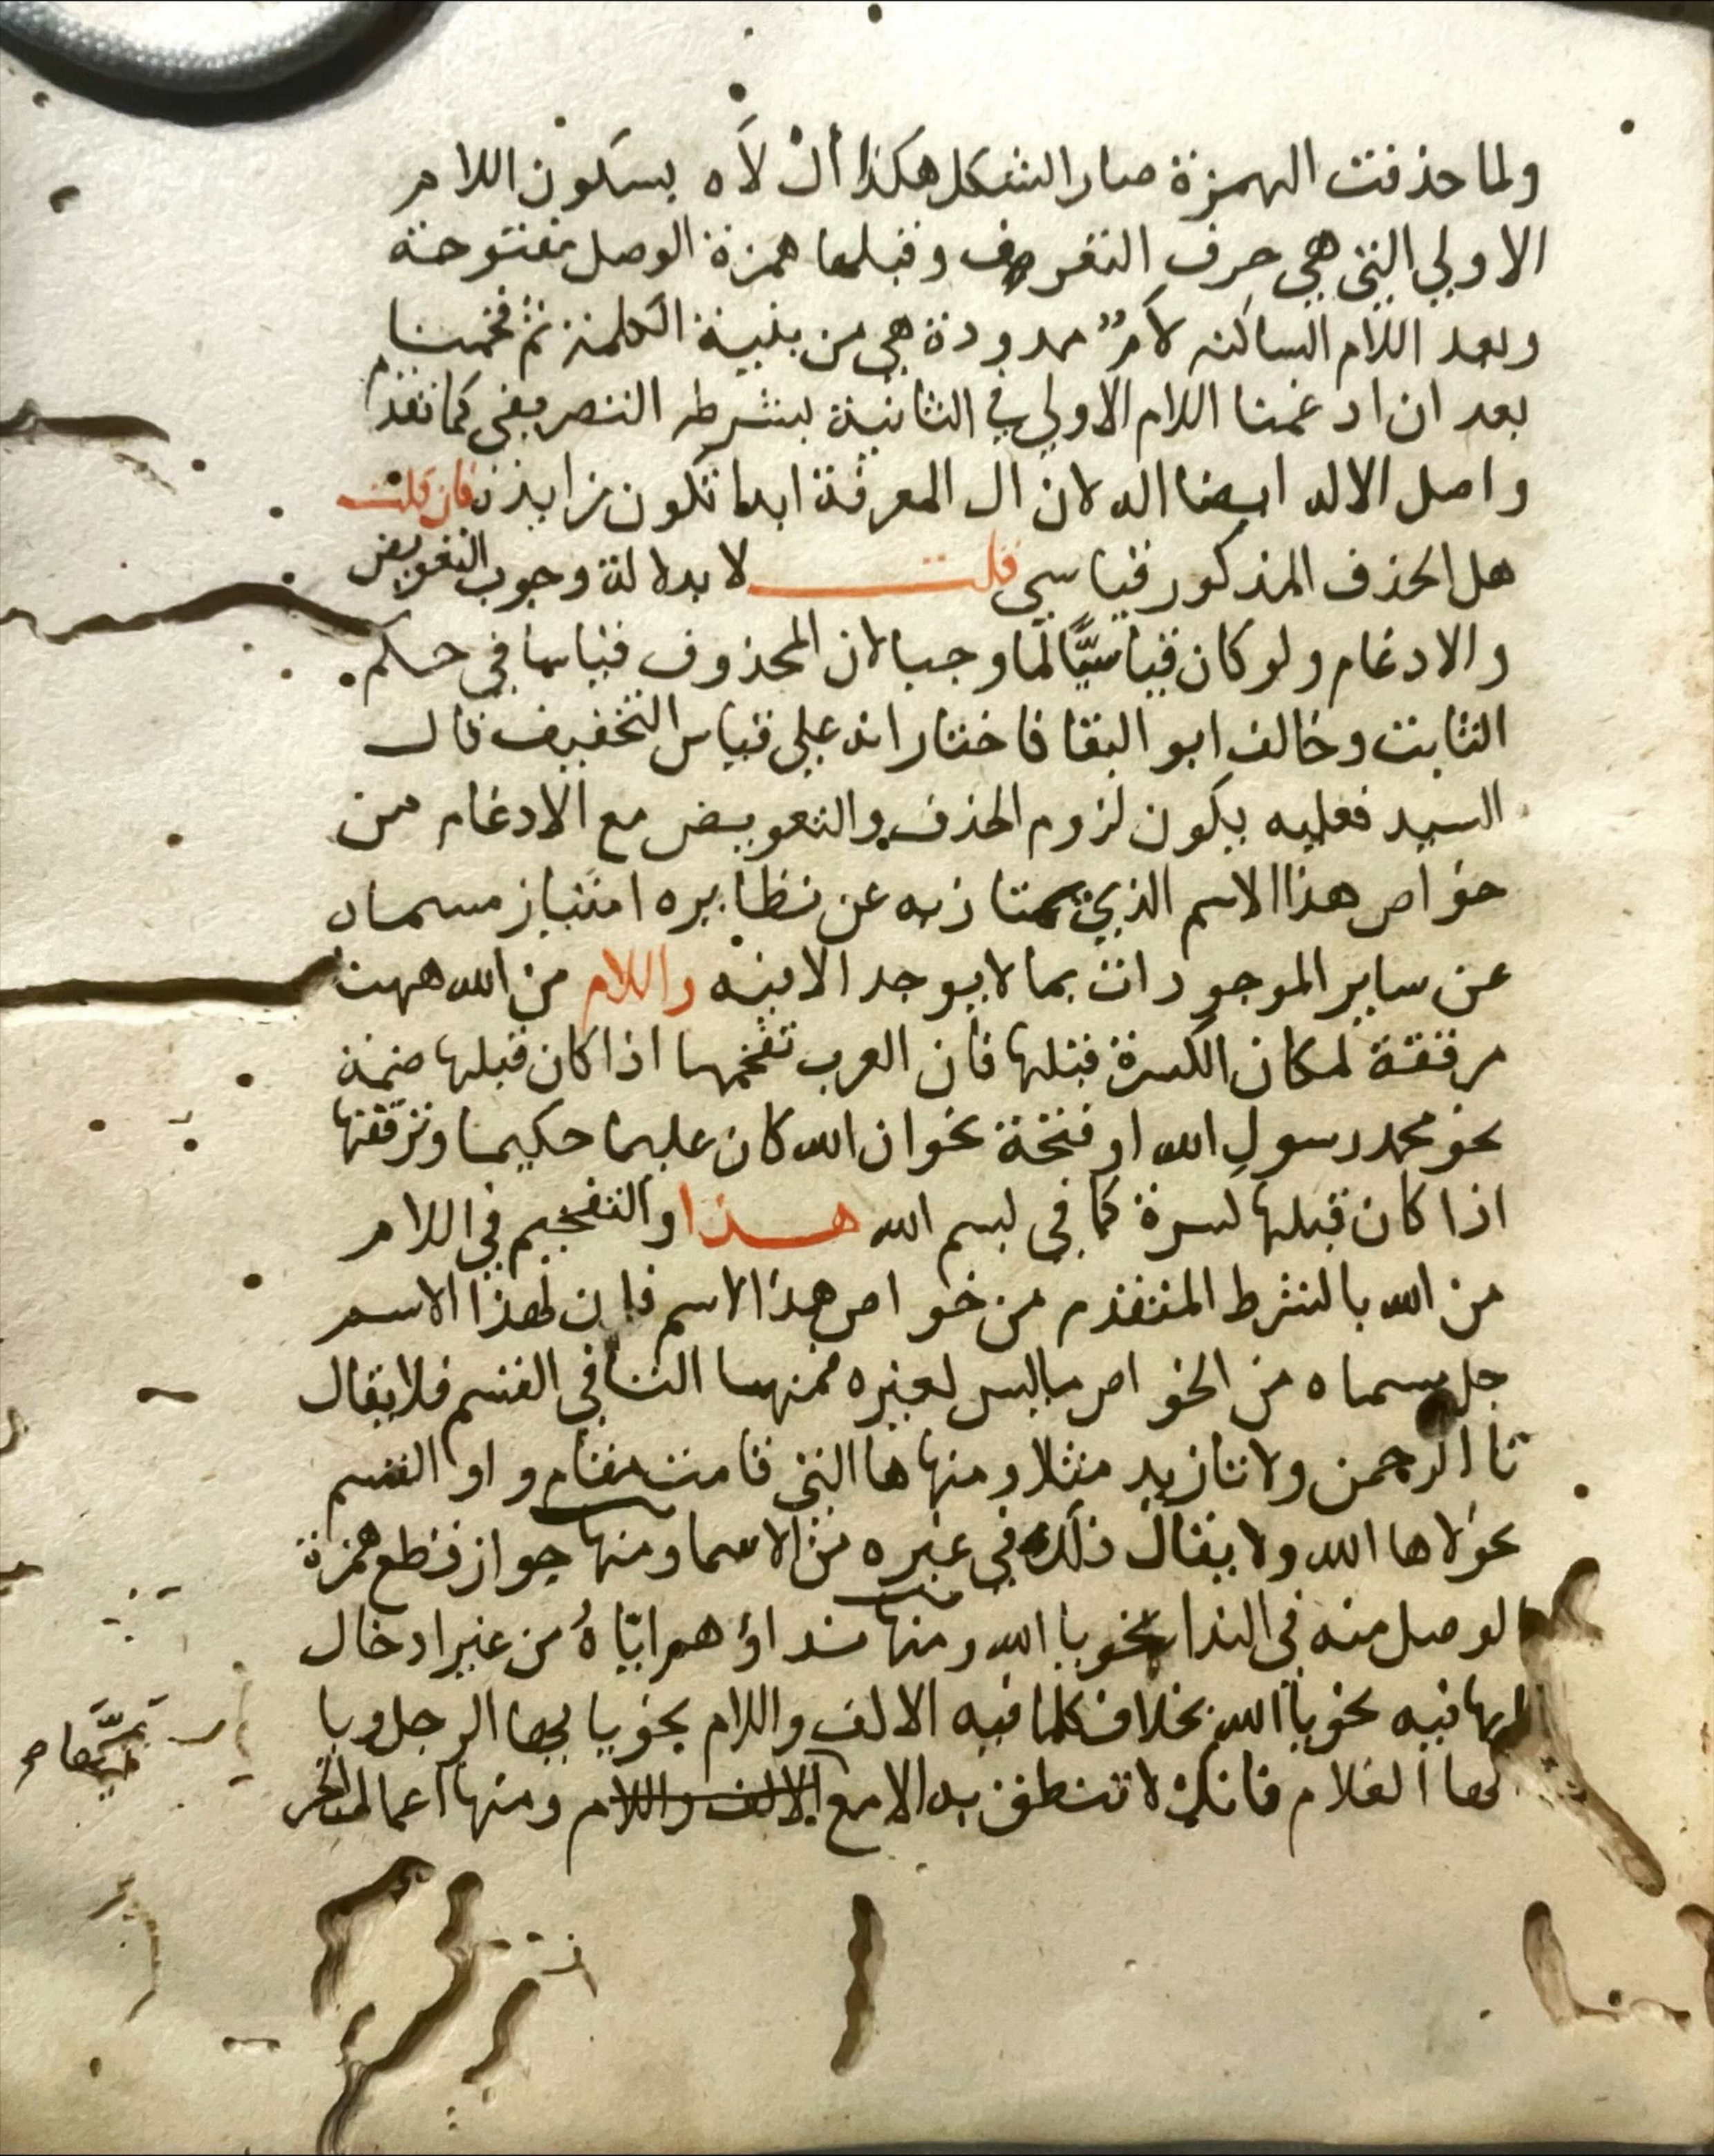 ولما حذفت الهمزة صار الشكل هكذا ألْ لَاه بسكون اللام
الاولي التي هي حرف التعريف وقبلها همزة الوصل مفتوحة
وبعد اللام الساكنه لامٌ ممدودة هي من بنية الكلمة ثم فخمنا
بعد ان ادغمنا اللام الاولي في الثانية بشرطه التصريفي كما تقدم
واصل الاله ايضا اله لان ال المعرفة ابدا تكون زايدة فان قلت
هل الحذف المذكور قياسي قلت لا بدلالة وجوب التعويض
والادغام ولو كان قياسيًّا لما وجبا لان المحذوف قياسا في حكم
الثابت وخالف ابو البقا فاختار انه علي قياس التخفيف قال
السيد فعليه يكون لزوم الحذف والتعويض مع الادغام من
خواص هذا الاسم الذي يمتاز به عن نظايره امتياز مسماه
عن ساير الموجودات بما لا يوجد الا فيه واللام من الله ههنا
مرققة لمكان الكسرة قبلها فان العرب تفخمها اذا كان قبلها ضمة
نحو محمد رسول الله او فتحة نحو ان الله كان عليما حكيما وترققها
اذا كان قبلها كسرة كما في بسم الله هذا والتفخيم في اللام
من الله بالشرط المتقدم من خواص هذا الاسم فان لهذا الاسم
جل مسماه من الخواص ما ليس لغيره فمنها التا في القسم فلا يقال
تا الرحمن ولا تا زيد مثلا ومنها ها التي قامت مقام واو القسم
نحو لاها الله ولا يقال ذلك في غيره من الاسما ومنها جواز قطع همزة
الوصل منه في الندا نحو يا الله ومنها نداؤهم ايّاهُ من غير ادخال
ايها فيه نحو يا الله بخلاف كلما فيه الالف واللام نحو يا ايها الرجل ويا
ايها الغلام فانك لا تنطق به الا مع الالف واللام ومنها اعمال الجر